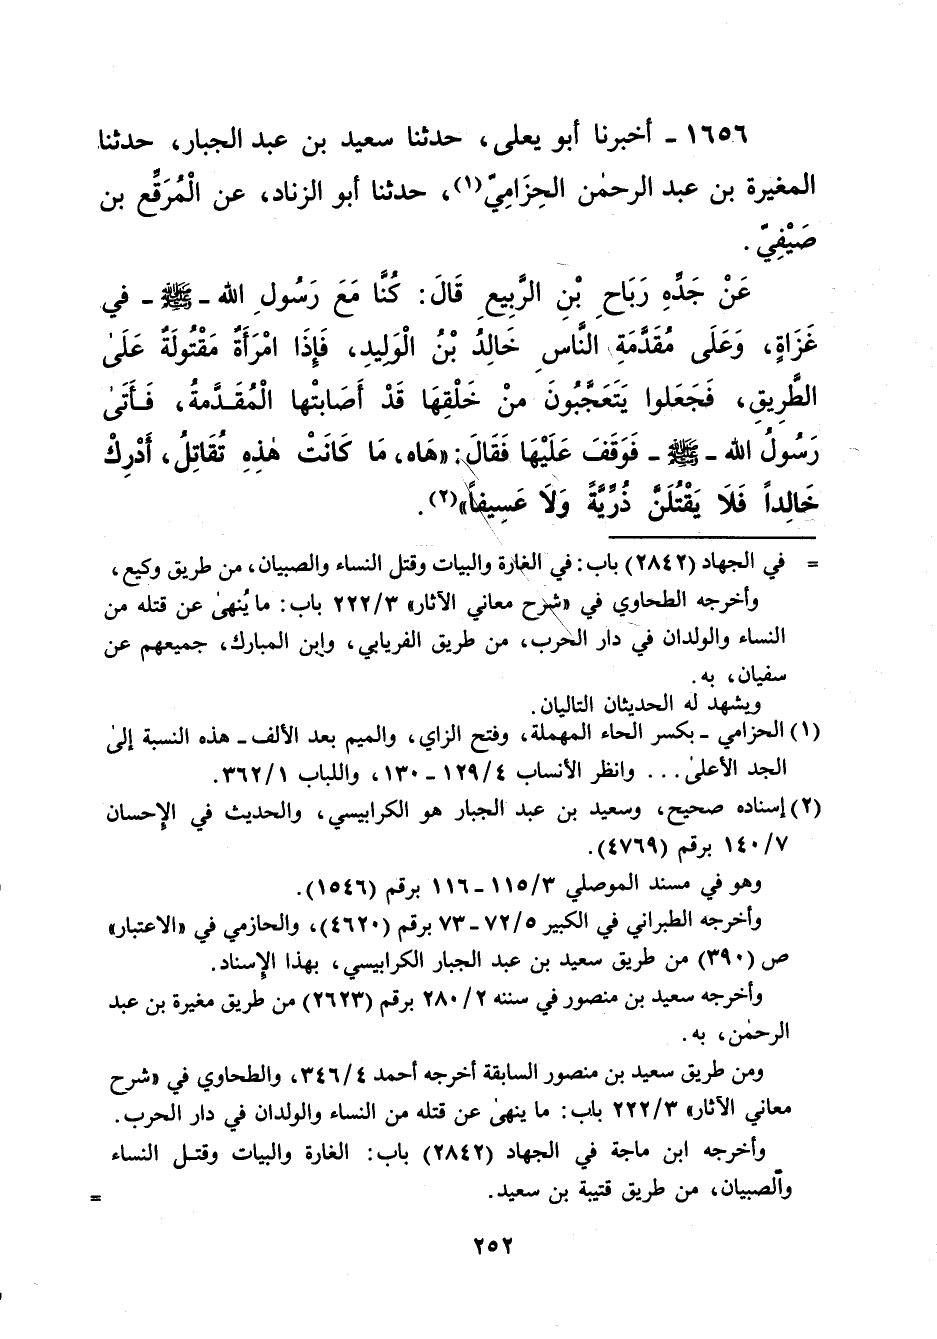 ١٦٥٦ - أخبرنا أبو يعلى، حدثنا سعيد بن عبد الجبار، حدثنا
المغيرة بن عبد الرحمٰن الحِزَامِيّ(١)، حدثنا أبو الزناد، عن الْمُرَقَّعِ بن
صَيْفِيّ.
عَنْ جَدِّهِ رَبَاحِ بْنِ الرَّبِيعِ قَالَ: كُنَّا مَعَ رَسُولِ الله - ﷺ - في
غَزَاةٍ، وَعَلَى مُقَدَّمَةِ النَّاسِ خَالِدُ بْنُ الْوَلِيدِ، فَإِذَا امْرَأَةٌ مَقْتُولَةٌ عَلَىٰ
الطَّرِيقِ، فَجَعَلوا يَتَعَجَّبُونَ مِنْ خَلْقِهَا قَدْ أَصَابَتْها الْمُقَدَّمةُ، فَأَتَىٰ
رَسُولُ الله - ﷺ - فَوَقَفَ عَلَيْهَا فَقَالَ: «هَاه، مَا كَانَتْ هٰذِهِ تُقَاتِلُ، أَدْرِكْ
خَالِداً فَلَا يَقْتُلَنَّ ذُرِّيَّةً وَلَا عَسِيفاً»(٢).
= في الجهاد (٢٨٤٢) باب: في الغارة والبيات وقتل النساء والصبيان، من طريق وكيع،
وأخرجه الطحاوي في «شرح معاني الآثار» ٢٢٢/٣ باب: ما يُنهىٰ عن قتله من
النساء والولدان في دار الحرب، من طريق الفريابي، وابن المبارك، جميعهم عن
سفيان، به.
ويشهد له الحديثان التاليان.
(١) الحزامي - بكسر الحاء المهملة، وفتح الزاي، والميم بعد الألف - هذه النسبة إلىٰ
الجد الأعلىٰ... وانظر الأنساب ١٢٩/٤ - ١٣٠، واللباب ٣٦٢/١.
(٢) إسناده صحيح، وسعيد بن عبد الجبار هو الكرابيسي، والحديث في الإحسان
١٤٠/٧ برقم (٤٧٦٩).
وهو في مسند الموصلي ١١٥/٣ - ١١٦ برقم (١٥٤٦).
وأخرجه الطبراني في الكبير ٧٢/٥ - ٧٣ برقم (٤٦٢٠)، والحازمي في «الاعتبار»
ص (٣٩٠) من طريق سعيد بن عبد الجبار الكرابيسي، بهذا الإسناد.
وأخرجه سعيد بن منصور في سننه ٢٨٠/٢ برقم (٢٦٢٣) من طريق مغيرة بن عبد
الرحمٰن، به.
ومن طريق سعيد بن منصور السابقة أخرجه أحمد ٣٤٦/٤، والطحاوي في «شرح
معاني الآثار» ٢٢٢/٣ باب: ما ينهىٰ عن قتله من النساء والولدان في دار الحرب.
وأخرجه ابن ماجة في الجهاد (٢٨٤٢) باب: الغارة والبيات وقتل النساء
والصبيان، من طريق قتيبة بن سعيد. =
٢٥٢